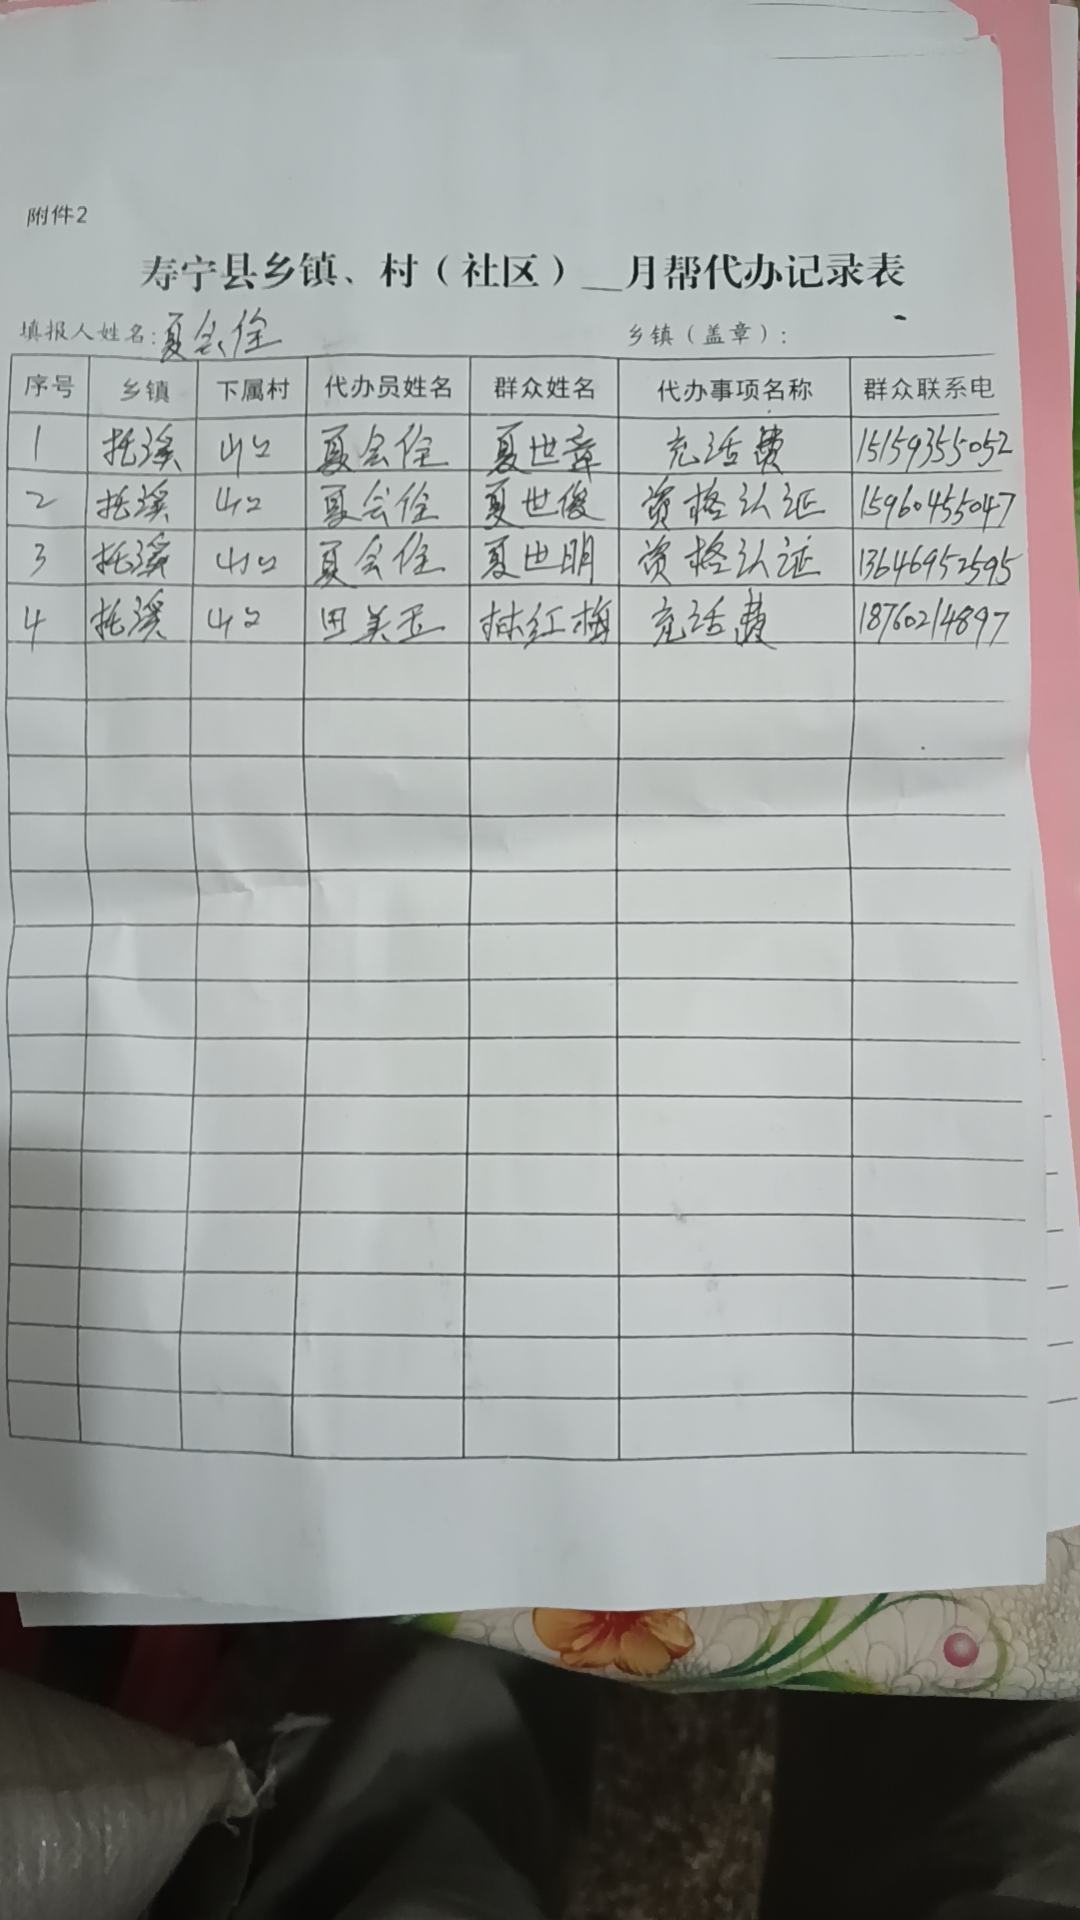 附件2
寿宁县乡镇、村（社区）__月帮代办记录表
填报人姓名:夏会佺 乡镇（盖章）:
序号 乡镇 下属村 代办员姓名 群众姓名 代办事项名称 群众联系电
1 托溪 山口 夏会佺 夏世章 充话费 15159355052
2 托溪 山口 夏会佺 夏世俊 资格认证 15960455047
3 托溪 山口 夏会佺 夏世明 资格认证 13646952595
4 托溪 山口 田美玉 林红梅 充话费 18760214897